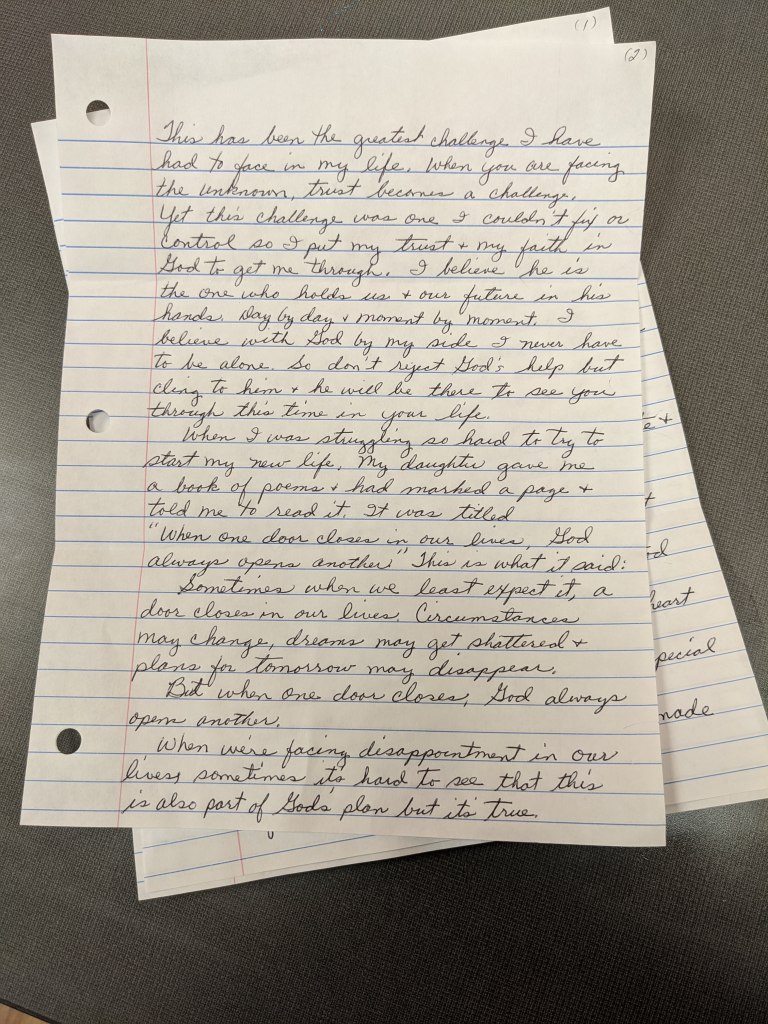 (1)
(2)
This has been the greatest challenge I have
had to face in my life. When you are facing
the unknown, trust becomes a challenge.
Yet this challenge was one I couldn't fix or
control so I put my trust + my faith in
God to get me through. I believe he is
the one who holds us + our future in his
hands. Day by day + moment by moment. I
believe with God by my side I never have
to be alone. So don't reject God's help but
cling to him + he will be there to see you
through this time in your life.
When I was struggling so hard to try to
start my new life. My daughter gave me
a book of poems + had marked a page +
told me to read it. It was titled
"When one door closes in our lives, God
always opens another" This is what it said:
Sometimes when we least expect it, a
door closes in our lives. Circumstances
may change, dreams may get shattered +
plans for tomorrow may disappear.
But when one door closes, God always
opens another.
When we're facing disappointment in our
lives, sometimes it's hard to see that this
is also part of God's plan but it's true.
+
heart
pecial
made